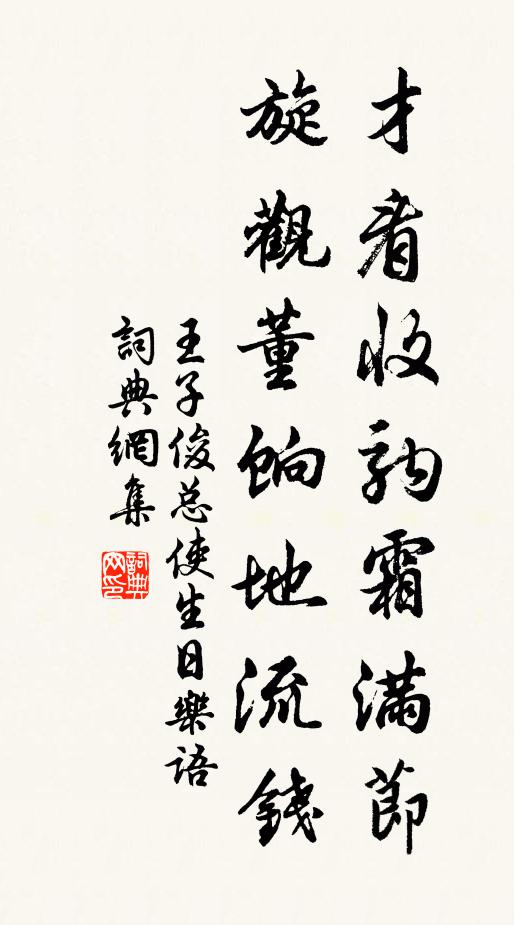 才看收鞫霜滿節
旋觀董餉地流錢
王子俊总使生日樂語
詞典網集
詞典
网印